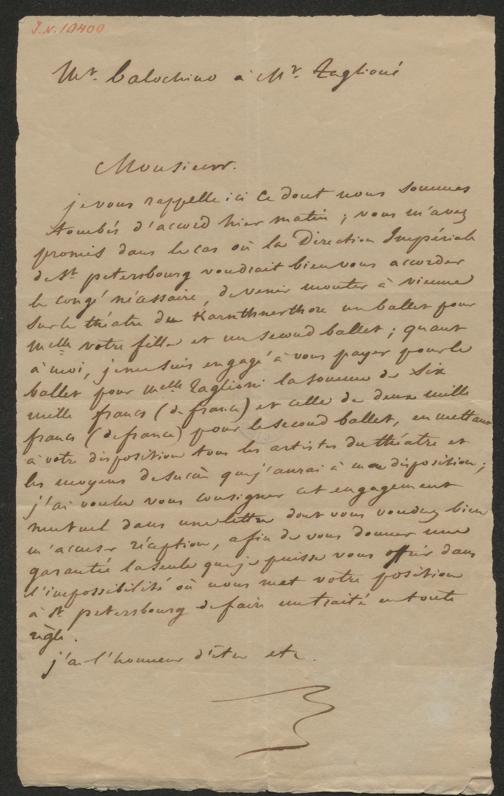 I.N. 10400
Mr. Balochino à Mr. Taglioni
Monsieur.
je vous rappelle ici ce dont nous sommes
tombés d'accord hier matin ; vous m'avez
promis dans le cas où la Direction Impériale
de St. petersbourg voudrait bien vous accorder
le congé nécassaire, de venir monter à vienne
sur le théatre du Karnthnerthore un ballet pour
Melle votre fille et un second ballet ; quant
à moi, je me suis engagé à vous payer pour le
ballet pour Melle Taglioni la somme de Six
mille francs (de france) et celle de deux mille
francs (de france) pour le second ballet, en mettant
à votre disposition tous les artistes du théatre et
les moyens de succès que j'aurai à ma disposition ;
j'ai voulu vous consigner cet engagement
mutuel dans une lettre dont vous voudrez bien
m'accuser réception, afin de vous donner une
garantie la seule que je puisse vous offrir dans
l'impossibilité où nous met votre position
à St. petersbourg de faire un traité en toute
règle.
j'ai l'honneur d'être etc.